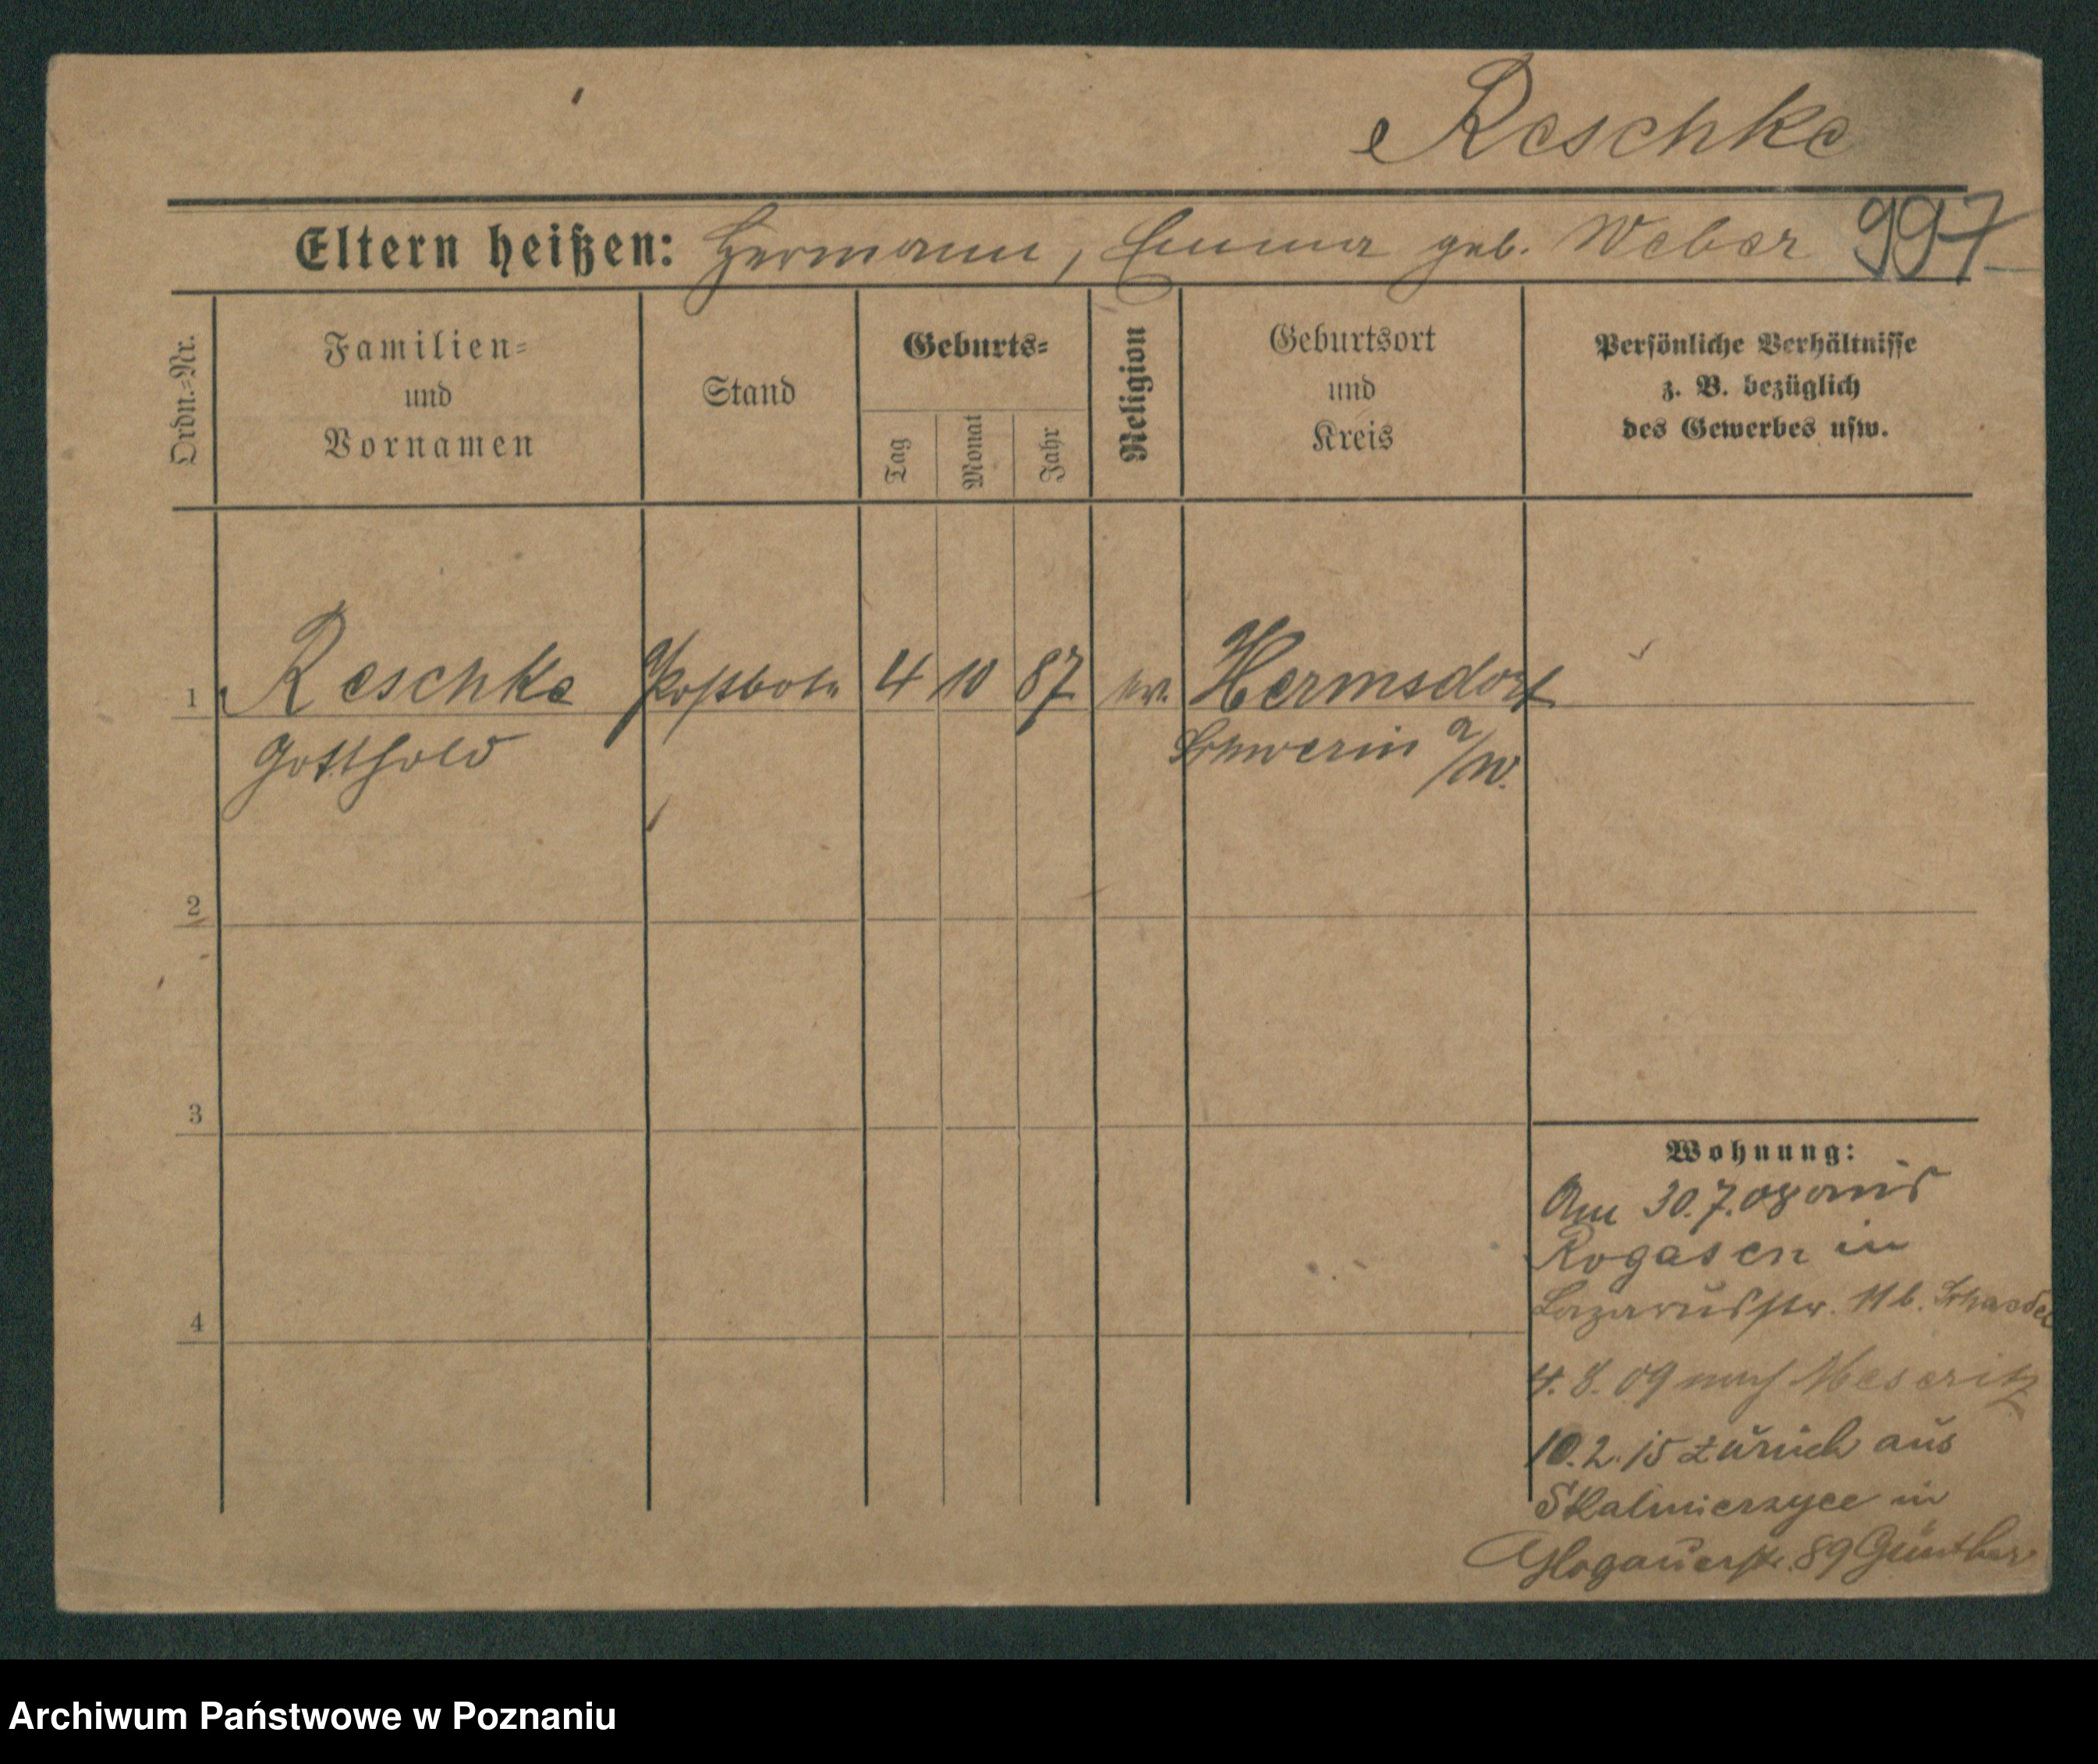 Reschke
Eltern heißen: Hermann, Emma geb. Weber 997
Ordn.-Nr.
Familien-
und
Vornamen
Stand
Geburts-
Tag
Monat
Jahr
Religion
Geburtsort
und
Kreis
Persönliche Verhältnisse
z. B. bezüglich
des Gewerbes usw.
1 Reschke Postbote 4 10 87 ev. Hermsdorf
Gotthold Schwerin a/W.
2
3
4
Wohnung:
Am 30.7.08 aus
Rogasen in
Lazarusstr. 11 b.
4.8.09 nach Meseritz
10.2.15 zurück aus
Skalmierzyce in
Glogauerstr. 89 Günther
Archiwum Państwowe w Poznaniu